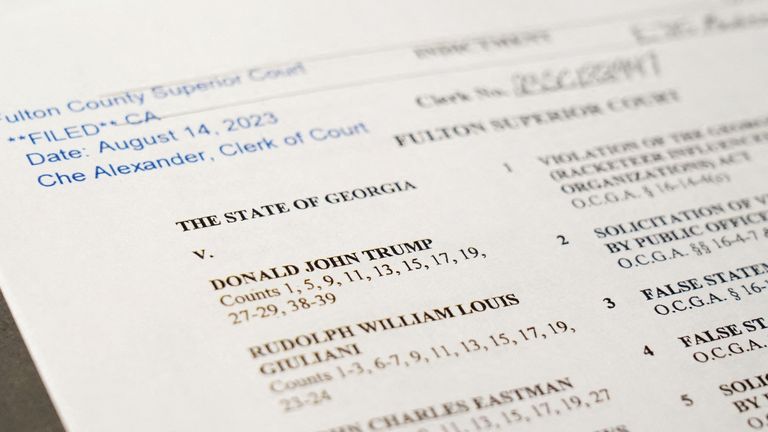 INDICTMENT
Fulton County Superior Court
**FILED** CA
Date: August 14, 2023
Che Alexander, Clerk of Court
Clerk No.
FULTON SUPERIOR COURT
THE STATE OF GEORGIA
v.
DONALD JOHN TRUMP
Counts 1, 5, 9, 11, 13, 15, 17, 19,
27-29, 38-39
RUDOLPH WILLIAM LOUIS
GIULIANI
Counts 1-3, 6-7, 9, 11, 13, 15, 17, 19,
23-24
JOHN CHARLES EASTMAN
11, 13, 15, 17, 19, 27
1 VIOLATION OF THE GEORG
(RACKETEER INFLUENCE
ORGANIZATIONS) ACT
O.C.G.A. § 16-14-4(c)
2 SOLICITATION OF V
BY PUBLIC OFFICE
O.C.G.A. §§ 16-4-7 &
3 FALSE STATEM
O.C.G.A. § 16-1
4 FALSE STA
O.C.G.A.
5 SOLIC
BY PU
O.C.G